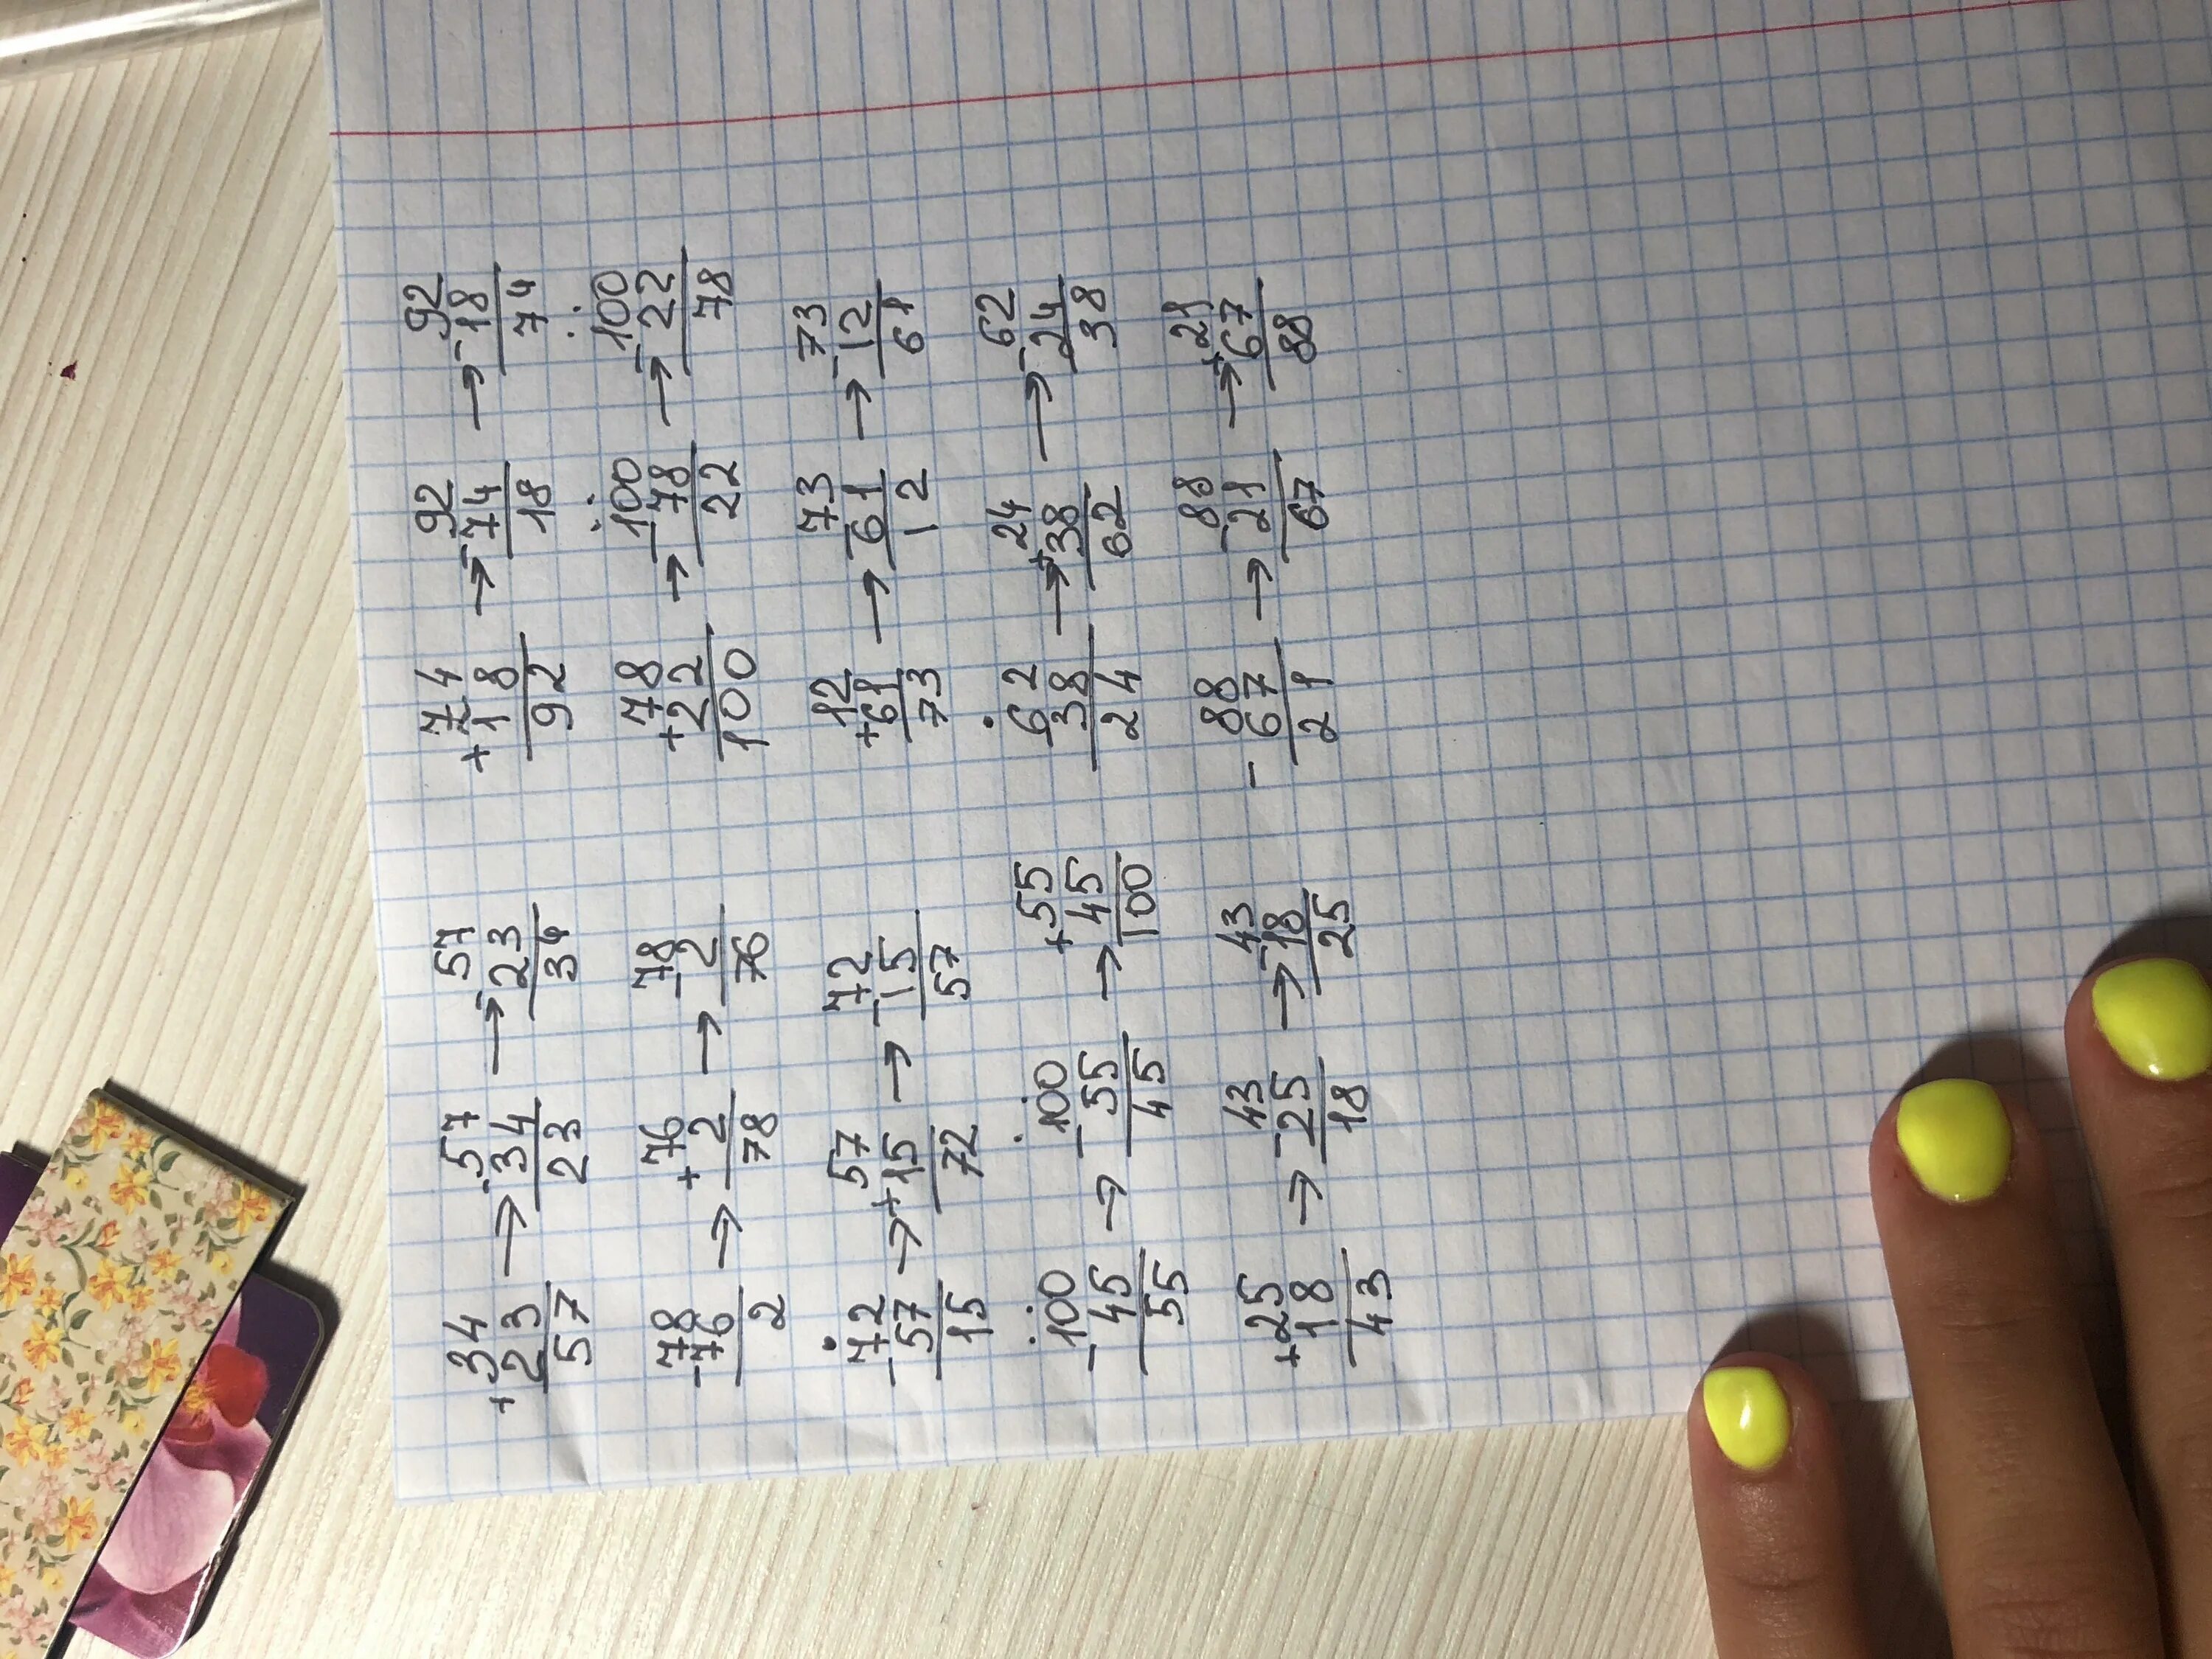 +34 → -57 → -57 +74 → -92 → -92
23 34 23 18 74 18
57 23 34 92 18 74
-78 → +76 → -78 +78 → -100 → -100
76 2 2 22 78 22
2 78 76 100 22 78
-72 → +57 → -72 +12 → -73 → -73
57 15 15 61 61 12
15 72 57 73 12 61
-100 → -100 → +55 62 → +24 → -62
45 55 45 38 38 24
55 45 100 24 62 38
+25 → -43 → -43 -88 → -88 → +21
18 25 18 67 21 67
43 18 25 21 67 88